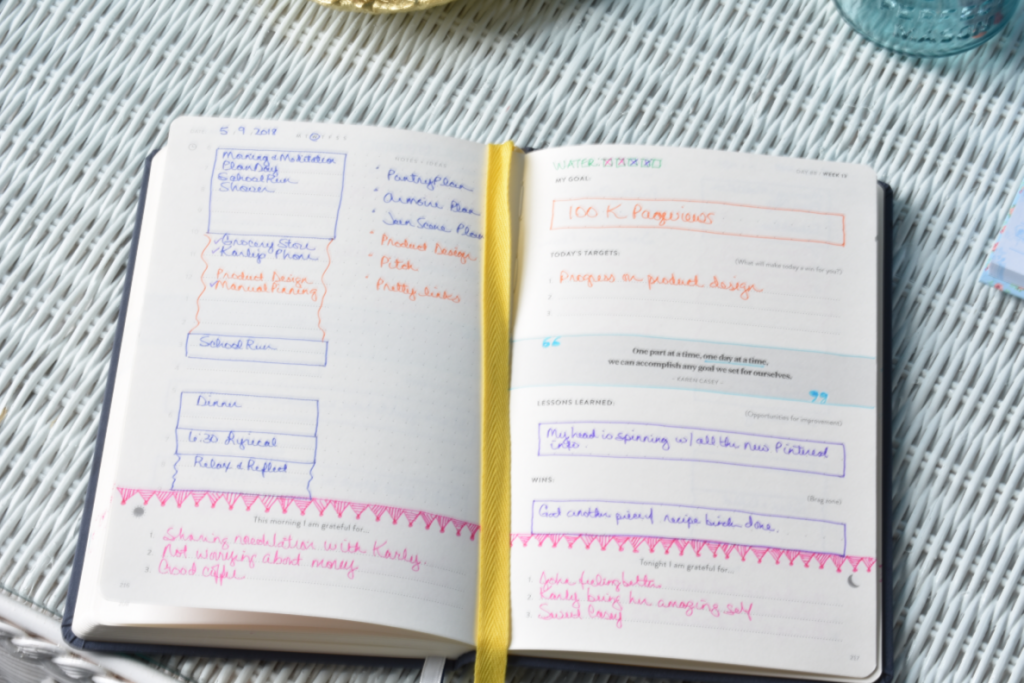 5.9.2018
Morning & Meditation
Plan Day
School Run
Shower
Grocery Store
Karly's Phone
Product Design
Manual Pinning
School Run
Dinner
6:30 Physical
Relax & Reflect
NOTES + IDEAS
Pantry Plan
Armoire Plan
Product Design
Pitch
Pretty links
This morning I am grateful for...
1. Sharing meditation with Karly.
2. Not worrying about money
3. Good coffee
WATER:
WEEK
MY GOAL:
100 K Pageviews
TODAY'S TARGETS:
(What will make today a win for you?)
1. Progress on product design
2.
3.
One part at a time, one day at a time,
we can accomplish any goal we set for ourselves.
- KAREN CASEY -
LESSONS LEARNED:
(Opportunities for improvement)
My head is spinning w/ all the new Pinterest
info.
WINS:
(Brag zone)
Got another recipe done.
Tonight I am grateful for...
1. John feeling better
2. Karly being her amazing self
3. Sweet Casey